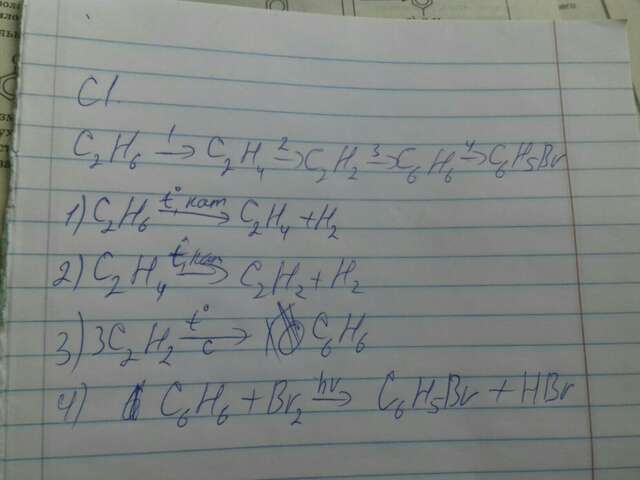 Cl
C₂H₆ →¹ C₂H₄ →² C₂H₂ →³ C₆H₆ →⁴ C₆H₅Br
1) C₂H₆ —t°, кат→ C₂H₄ + H₂
2) C₂H₄ —t°, кат→ C₂H₂ + H₂
3) 3C₂H₂ —t°, C→ C₆H₆
4) C₆H₆ + Br₂ —hν→ C₆H₅Br + HBr